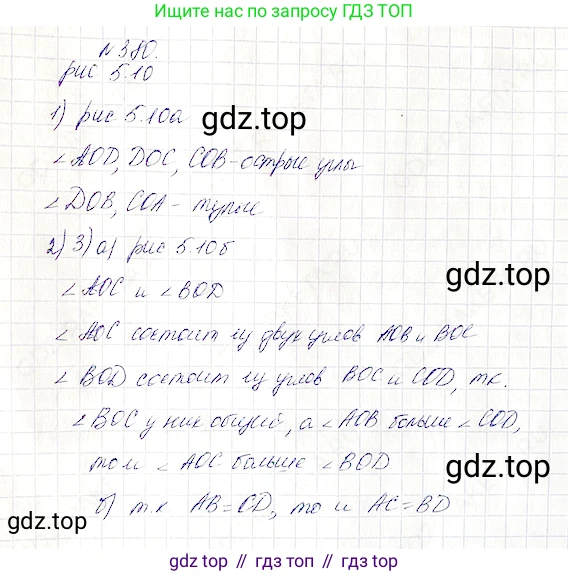 Ищите нас по запросу ГДЗ ТОП
№ 380.
рис 5.10
1) рис 5.10а
gdz.top
∠AOD, DOC, COB - острые углы
∠DOB, COA - тупые
2) 3) а) рис 5.10б
gdz.top
∠AOC и ∠BOD
∠AOC состоит из двух углов AOB и BOC
∠BOD состоит из углов BOC и COD, т.к.
∠BOC у них общий, а ∠AOB больше ∠COD,
то и ∠AOC больше ∠BOD
gdz.top
б) т.к. AB = CD, то и AC = BD
gdz.top
gdz.top // гдз топ // гдз.top // гдз.топ